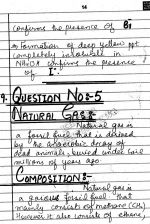 14
Confirms the presence of Br
→ Formation of deep yellow ppt
completely insoluble in
NH4OH confirms the presence
of I⁻.
QUESTION NO:-5
NATURAL GAS:-
Natural gas is
a fossil fuel that is derived
by the anaerobic decay of
dead animals, buried under soil
millions of years ago.
COMPOSITION:-
Natural gas is
a gaseous fossil fuel that
mainly consists of methane (CH4)
However it also consists of ethane,